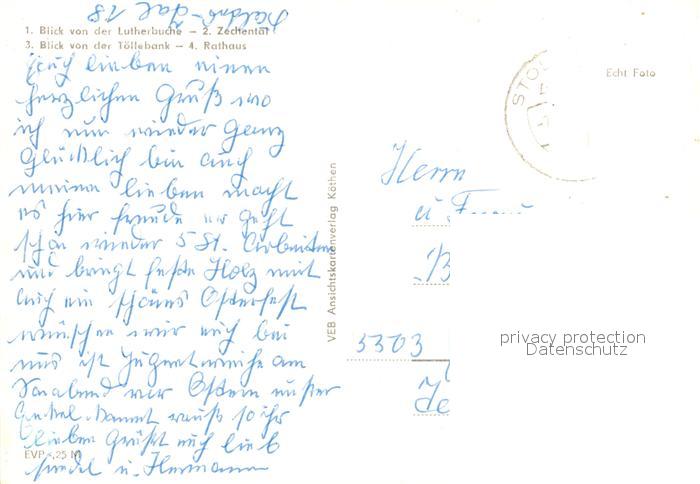 1. Blick von der Lutherbuche — 2. Zechental
3. Blick von der Töllebank — 4. Rathaus
Euch lieben einen
herzlichen Gruß wo
ich nun wieder ganz
Glücklich bin auch
meinen lieben macht
es hier freude er geht
schon wieder 5 St. Arbeiten
und bringt feste Holz mit
Euch ein schönes Osterfest
wünschen wir euch bei
uns ist Jugentweihe am
Sonabend vor Ostern unser
Enkel kommt raus so ihr
lieben Grüßt euch lieb
u. Hermann
EVP -,25 M
VEB Ansichtskartenverlag Köthen
Echt Foto
STOL
Herrn
u
5303
privacy protection
Datenschutz